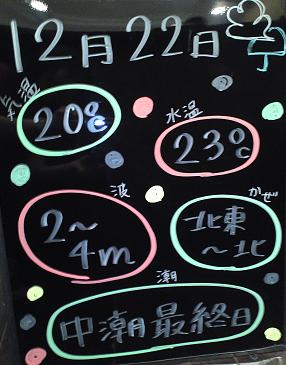 12月22日
気温
20℃
水温
23℃
波
2〜
4m
かぜ
北東
〜北
潮
中潮最終日